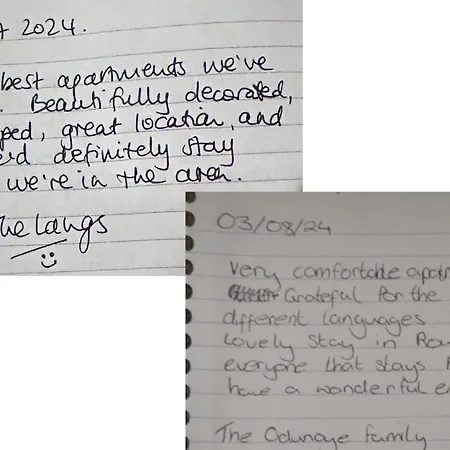 2024.
best apartments we've
Beautifully decorated,
great location, and
definitely stay
we're in the area.
Langs
03/08/24
Very comfortable
Grateful for the
different languages
Lovely stay in
everyone that stays
have a wonderful
The Odunaye family